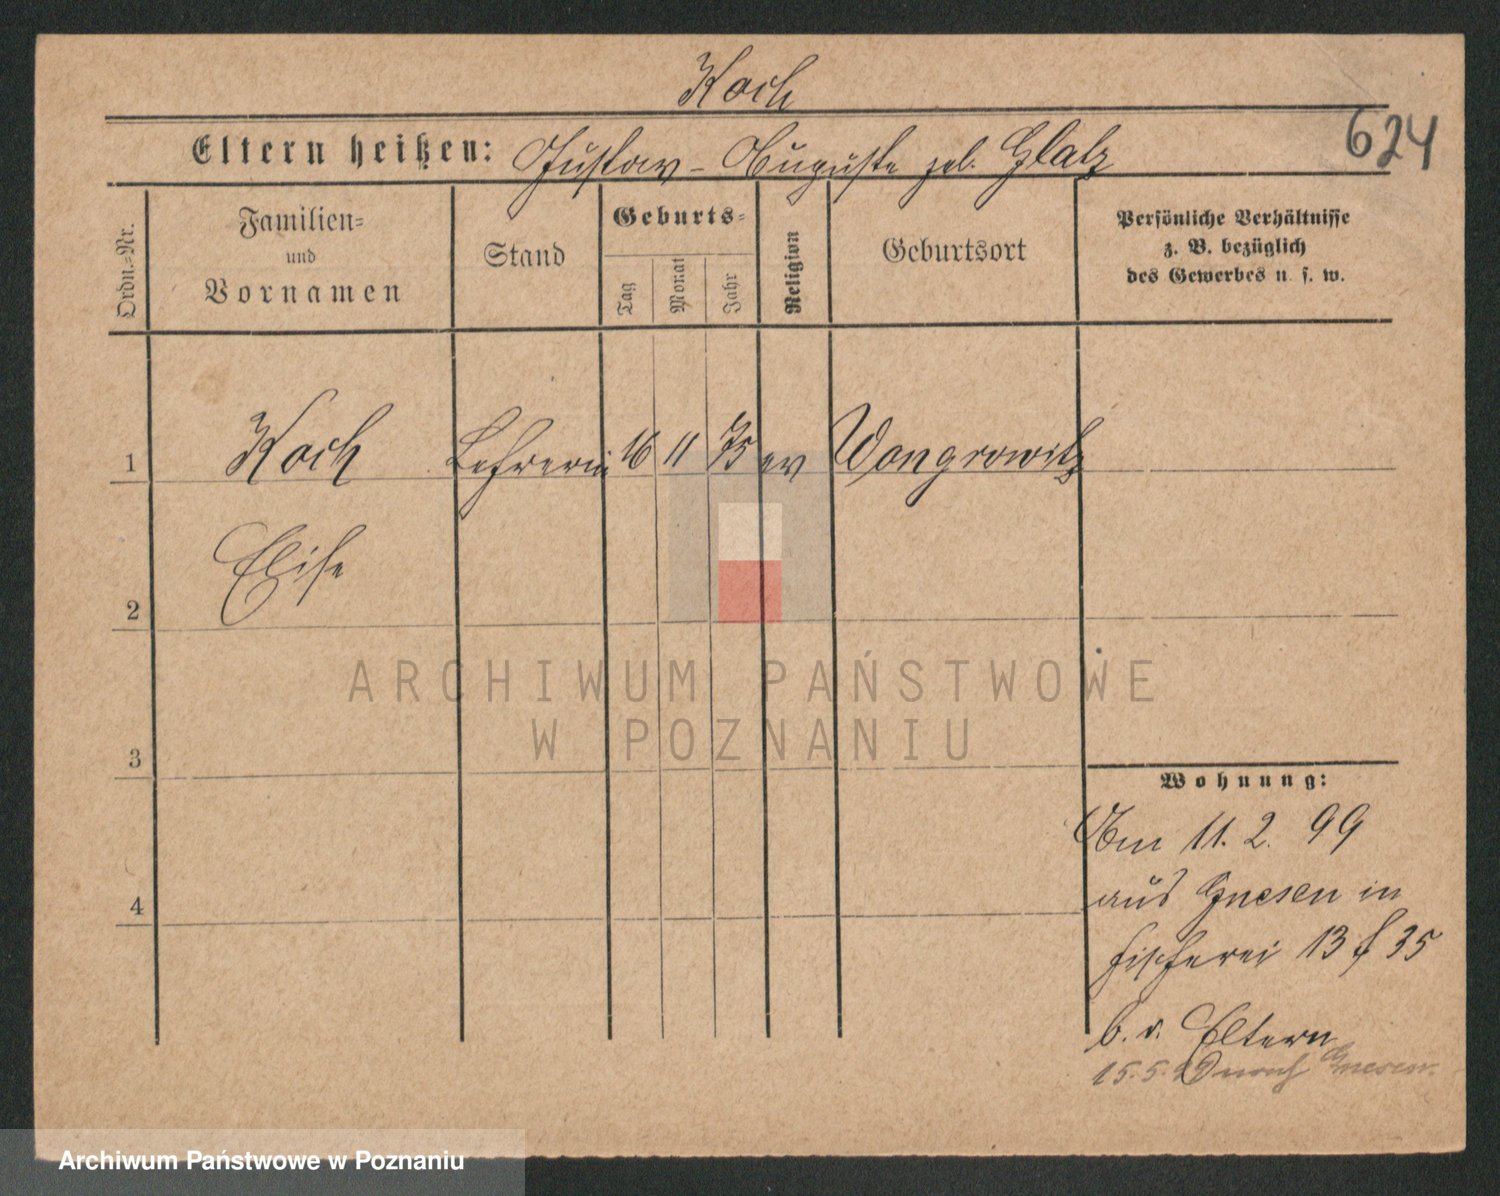 Koch
624
Eltern heißen: Gustav - Auguste geb. Glatz
Ordn.-Nr.
Familien-
und
Vornamen
Stand
Geburts-
Tag
Monat
Jahr
Religion
Geburtsort
Persönliche Verhältnisse
z. B. bezüglich
des Gewerbes u. s. w.
1 Koch Lehrerin 16 11 75 ev Wongrowitz
Elise
2
3
4
Wohnung:
Am 11. 2. 99
aus Gnesen in
Fischerei 13 f 35
b. d. Eltern
15. 5. nach Gnesen.
ARCHIWUM PAŃSTWOWE
W POZNANIU
Archiwum Państwowe w Poznaniu